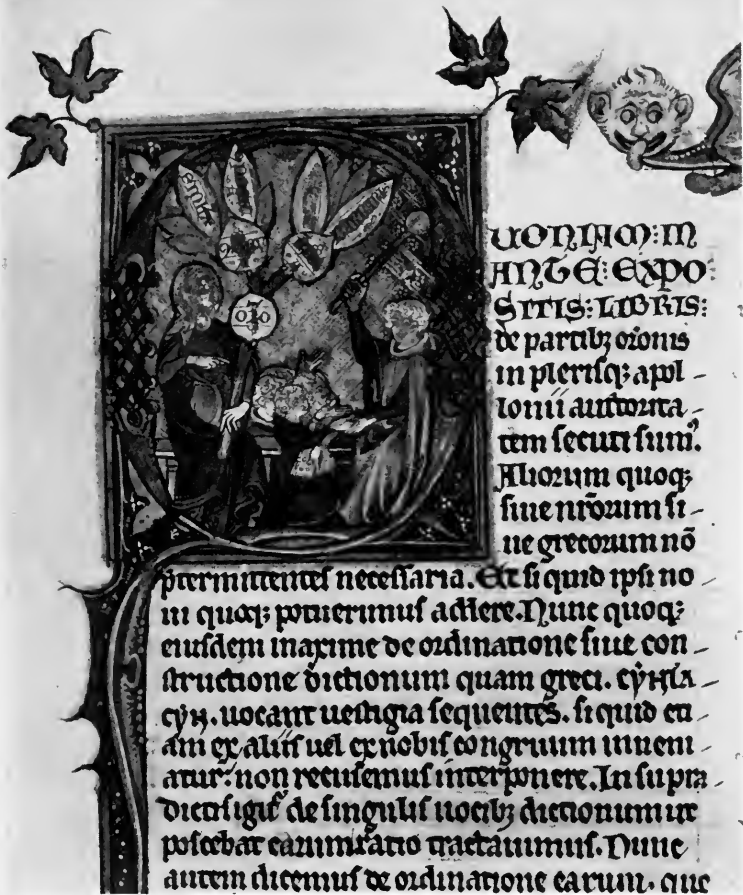 UONIAM: IN
ANTE: EXPO
SITIS: LIBRIS:
de partibꝫ oronis
in plerisqꝫ apol-
lonii auctorita-
tem secuti sumꝰ.
Aliorum quoqꝫ
siue nr̄orum si-
ue grecorum nō
ptermittentes necessaria. Et si quid ipsi no-
ui quoqꝫ potuerimus addere. Nunc quoqꝫ
eiusdem maxime de ordinatione siue con-
structione dictionum quam greci. cyНТА-
cyН. uocant uestigia sequentes. si quid eti-
am ex aliis uel ex nobis congruum inueni-
atur: non recusemus interponere. In supra-
dictis igit᷑ de singulis uocibꝫ dictionum ut
poscebat earum ratio tractauimus. Nunc
autem dicemus de ordinatione earum. que